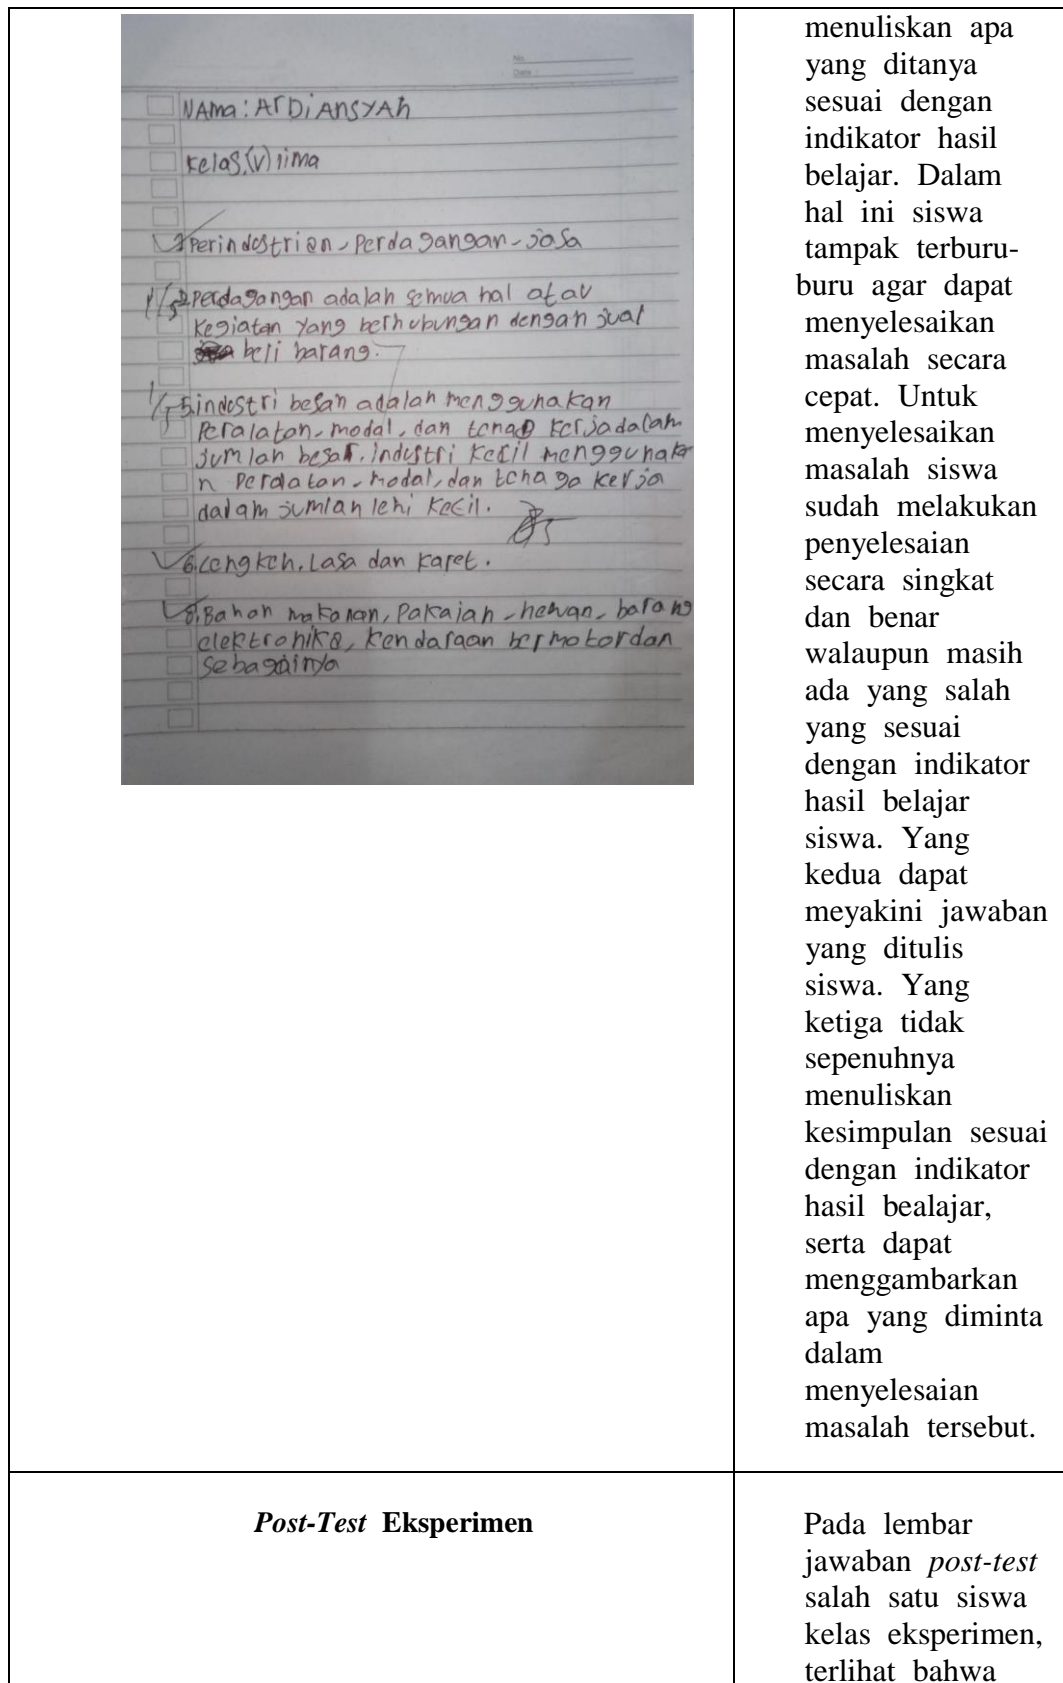 No.
Date :
NAma : ArDiAnsyAh
kelas,(v) lima
1 Perindostrian, Perdagangan, jasa
2 perdagangan adalah semua hal atau
kegiatan yang berhubungan dengan jual
beli barang.
5. industri besan adalah menggunakan
Peralatan, modal, dan tenag kerjadalam
jumlah besar. industri kecil menggunaka
n peralatan, modal, dan tenaga kerja
dalam jumlah lehi kecil.
6. cengkeh, Lasa dan karet.
8. Bahan makanan, pakaian, hewan, barang
elektronika, kendaraan bermotordan
sebagainya
menuliskan apa
yang ditanya
sesuai dengan
indikator hasil
belajar. Dalam
hal ini siswa
tampak terburu-
buru agar dapat
menyelesaikan
masalah secara
cepat. Untuk
menyelesaikan
masalah siswa
sudah melakukan
penyelesaian
secara singkat
dan benar
walaupun masih
ada yang salah
yang sesuai
dengan indikator
hasil belajar
siswa. Yang
kedua dapat
meyakini jawaban
yang ditulis
siswa. Yang
ketiga tidak
sepenuhnya
menuliskan
kesimpulan sesuai
dengan indikator
hasil bealajar,
serta dapat
menggambarkan
apa yang diminta
dalam
menyelesaian
masalah tersebut.
Post-Test Eksperimen
Pada lembar
jawaban post-test
salah satu siswa
kelas eksperimen,
terlihat bahwa